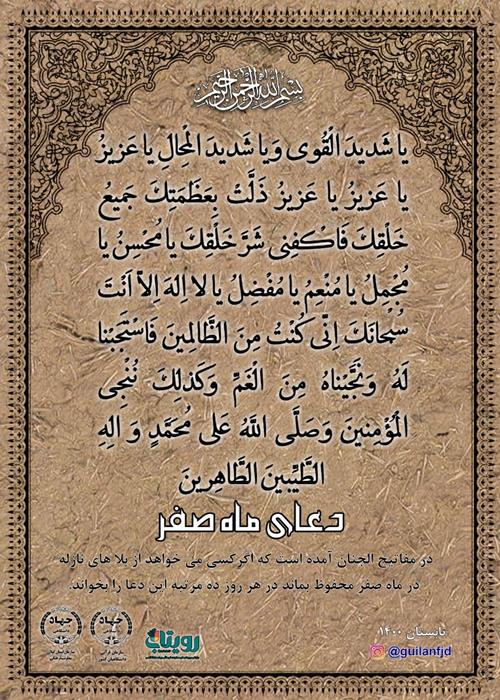 بسم الله الرحمن الرحیم
یا شَدیدَ الْقُوی وَیا شَدیدَ الْمِحالِ یا عَزیزُ
یا عَزیزُ یا عَزیزُ ذَلَّتْ بِعَظَمَتِكَ جَمیعُ
خَلْقِكَ فَاكْفِنی شَرَّ خَلْقِكَ یا مُحْسِنُ یا
مُجْمِلُ یا مُنْعِمُ یا مُفْضِلُ یا لا اِلهَ اِلاّ اَنْتَ
سُبْحانَكَ اِنّی كُنْتُ مِنَ الظّالِمینَ فَاسْتَجَبْنا
لَهُ وَنَجَّیْناهُ مِنَ الْغَمِّ وَكَذلِكَ نُنْجِی
الْمُؤْمِنینَ وَصَلَّی اللّهُ عَلی مُحَمَّدٍ وَ الِهِ
الطَّیِّبینَ الطّاهِرینَ
دعای ماه صفر
در مفاتیح الجنان آمده است که اگر کسی می خواهد از بلا های نازله
در ماه صفر محفوظ بماند در هر روز ده مرتبه این دعا را بخواند.
تابستان ۱۴۰۰
@guilanfjd
رویتاب
جهاد
دانشگاهی
سازمان قرآنی
دانشگاهیان کشور
جهاد
دانشگاهی